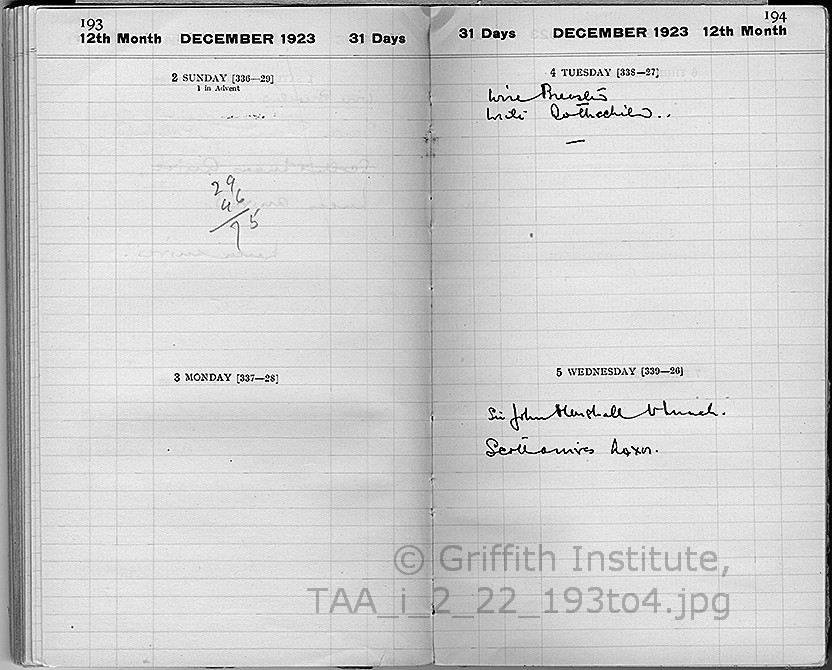 193
12th Month DECEMBER 1923 31 Days
2 SUNDAY [336—29]
1 in Advent
29
46
75
3 MONDAY [337—28]
194
31 Days DECEMBER 1923 12th Month
4 TUESDAY [338—27]
Wire Breasted
Write Rothschild..
—
5 WEDNESDAY [339—26]
Sir John Marshall to lunch.
Scott arrives Luxor.
© Griffith Institute,
TAA_i_2_22_193to4.jpg